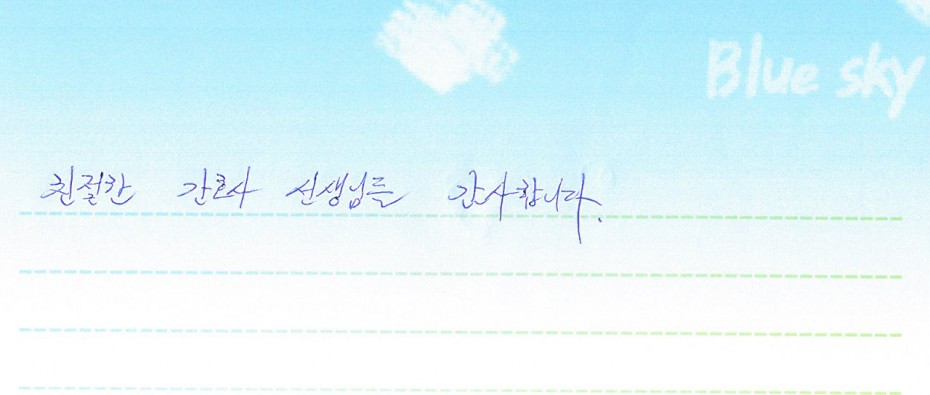 Blue sky
친절한 간호사 선생님들 감사합니다.